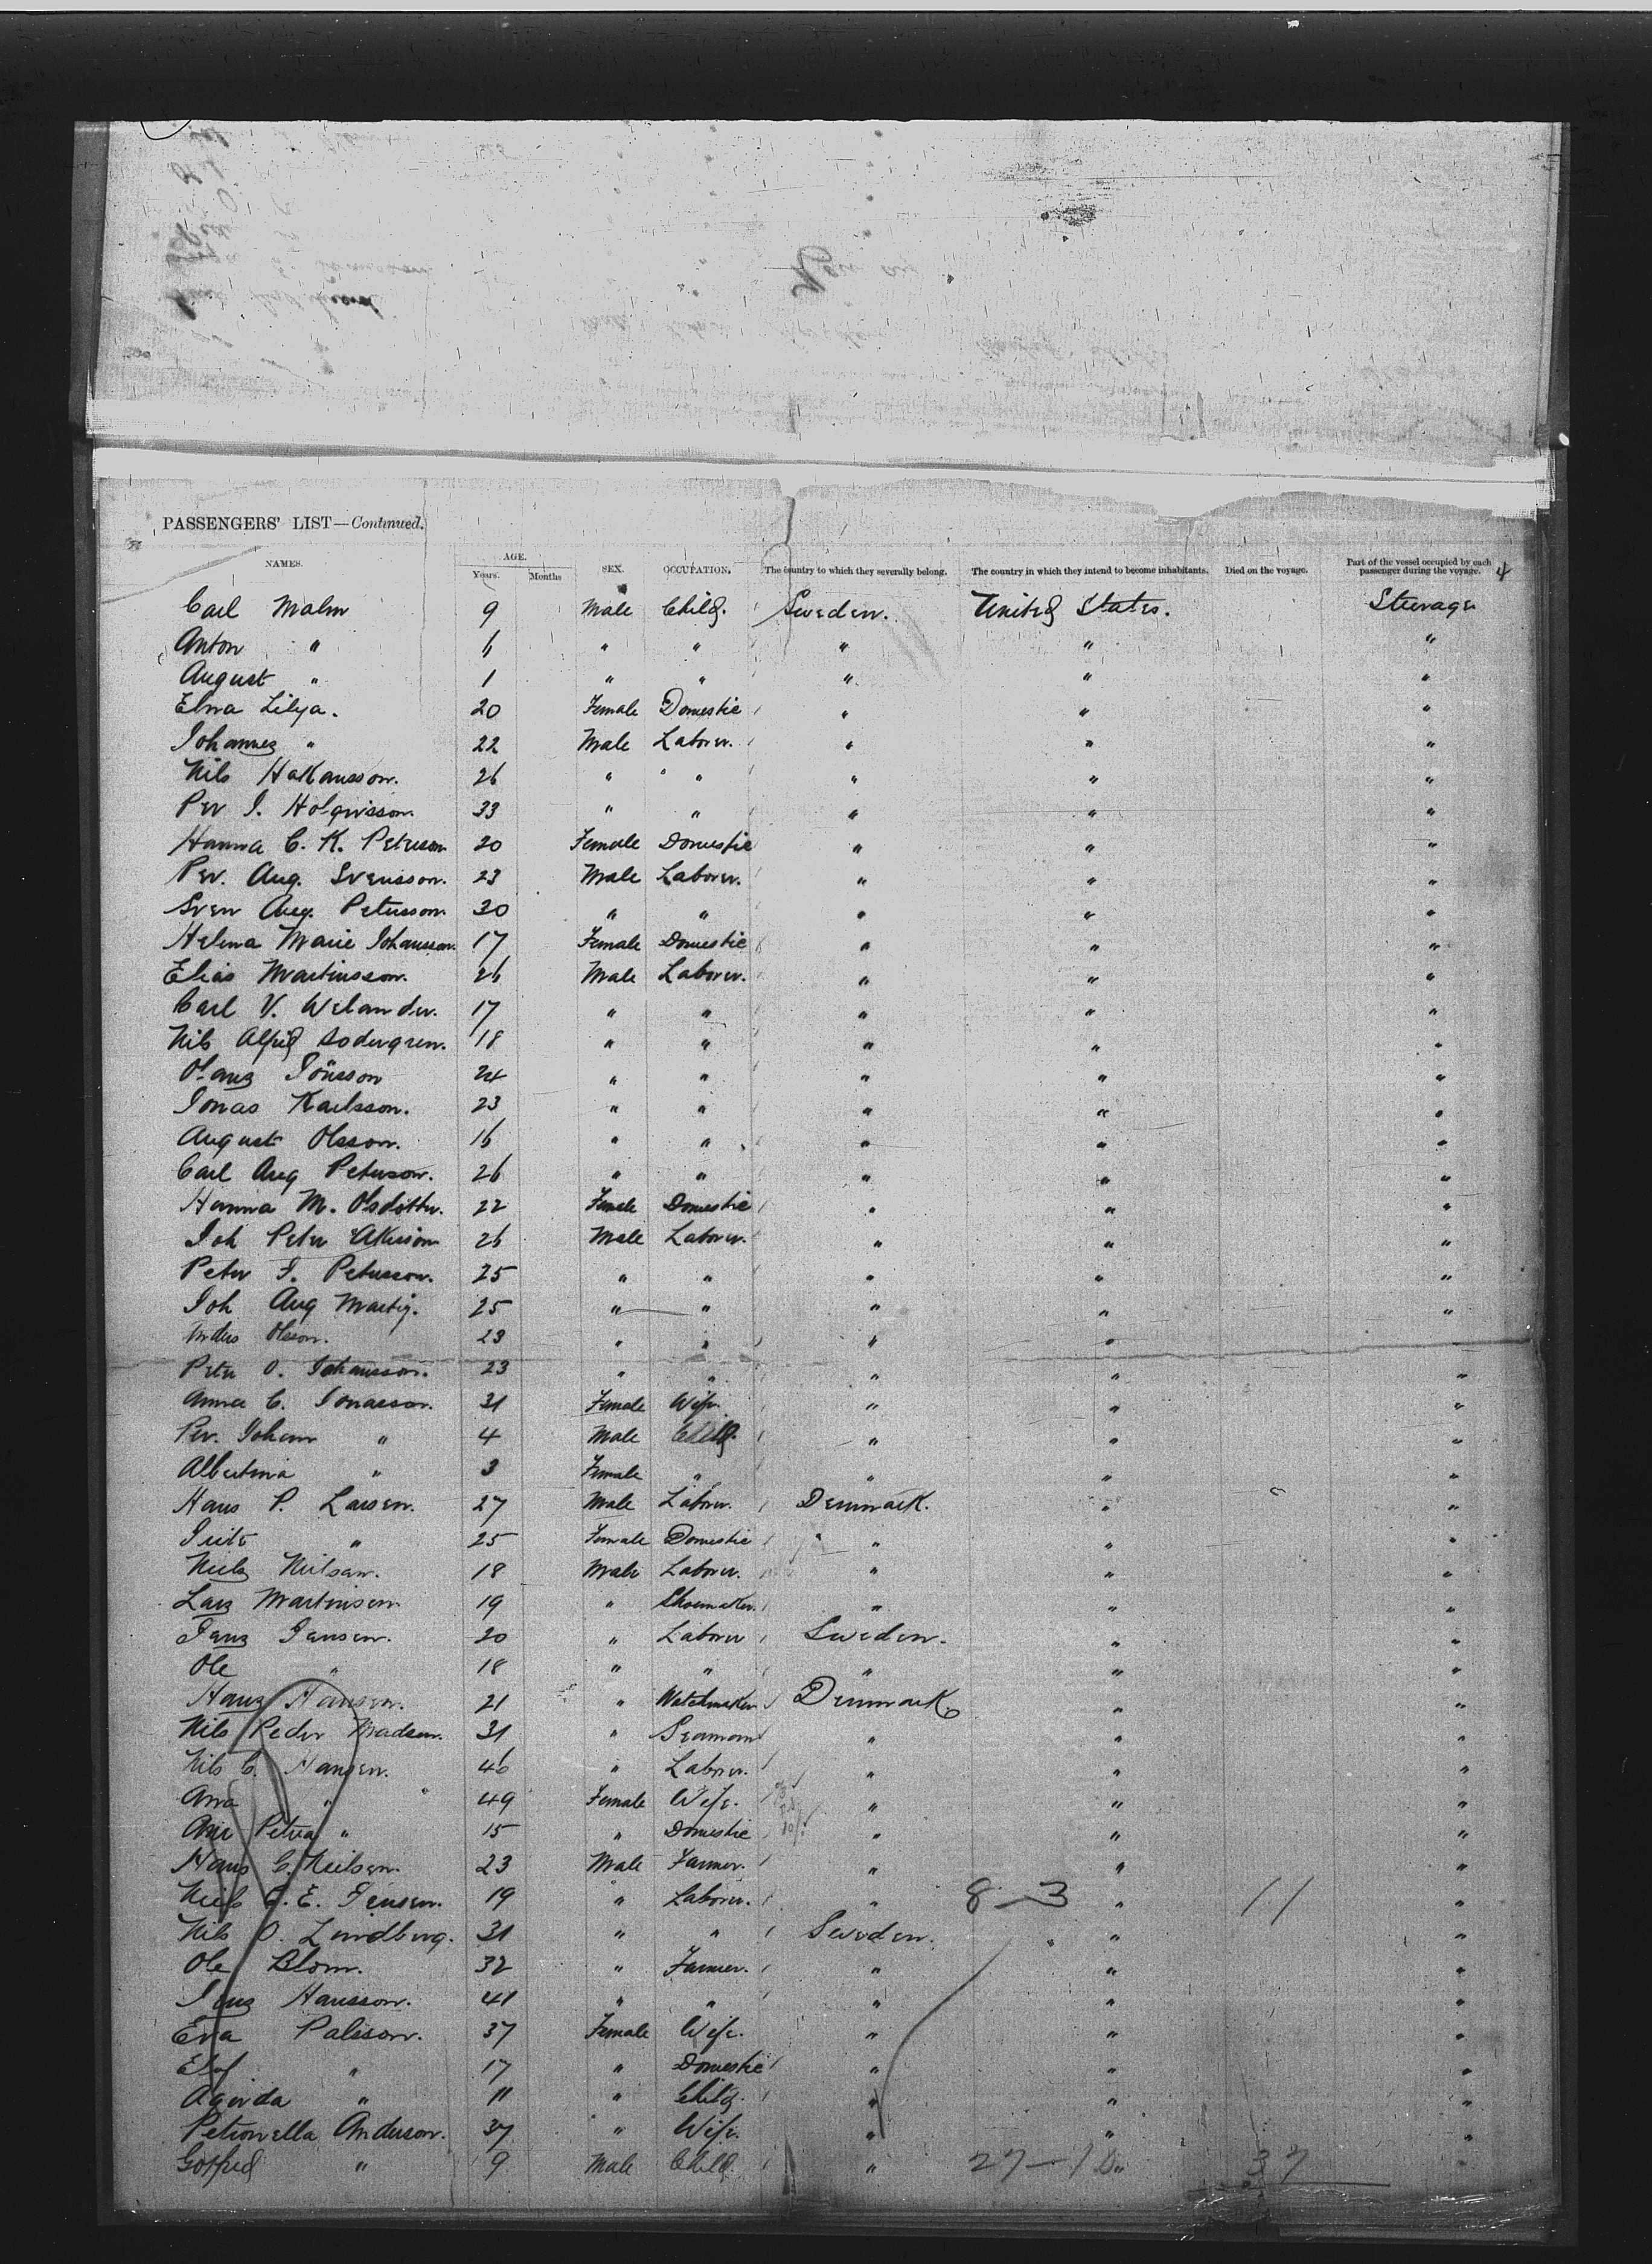 PASSENGERS' LIST—Continued.
NAMES. AGE. Years. Months SEX. OCCUPATION. The country to which they severally belong. The country in which they intend to become inhabitants. Died on the voyage. Part of the vessel occupied by each passenger during the voyage. 4
Carl Malm 9 Male Child. Sweden. United States. Steerage
Anton " 6 " " " " "
August " 1 " " " " "
Elna Lilya. 20 Female Domestic " " "
Johannes " 22 Male Laborer. " " "
Nils Hakansson. 26 " " " " "
Per J. Holqvisson. 33 " " " " "
Hanna C. K. Peterson 20 Female Domestic " " "
Per. Aug. Svensson. 23 Male Laborer. " " "
Sven Aug. Petersson. 30 " " " " "
Helena Marie Johansson. 17 Female Domestic " " "
Elias Martinsson. 26 Male Laborer. " " "
Carl V. Welander. 17 " " " " "
Nils Alfred Sodergren. 18 " " " " "
Jönsson 24 " " " " "
Jonas Karlsson. 23 " " " " "
August Olsson. 16 " " " " "
Carl Aug Peterson. 26 " " " " "
Hanna M. Olsdotter. 22 Female Domestic " " "
Joh Peter Akesson 26 Male Laborer. " " "
Peter J. Petersson. 25 " " " " "
Joh Aug 25 " " " " "
Anders Olsson. 23 " " " " "
Peter O. Johansson. 23 " " " " "
Anna C. Jonasson. 31 Female Wife. " " "
Per. Johann " 4 Male Child. " " "
Albertina " 3 Female " " " "
Hans P. Larsen. 27 Male Laborer. Denmark. " "
" 25 Female Domestic " " "
Niels Nielsen. 18 Male Laborer. " " "
Lars Martinsen 19 " Shoemaker. " " "
Jens Jensen. 20 " Laborer Sweden. " "
Ole " 18 " " " " "
Hans Hansen. 21 " Watchmaker Denmark. " "
Nils Peder Madsen. 31 " Seaman " " "
Nils C. Hansen. 46 " Laborer. " " "
Ana " 49 Female Wife. " " "
Ane Petra " 15 " Domestic " " "
Hans C. Neilsen. 23 Male Farmer. " " "
Niels C. E. Jensen. 19 " Laborer. " 8-3 " 11 "
Nils O. Lundberg. 31 " " Sweden. " "
Ole Blom. 32 " Farmer. " " "
Jens Hansson. 41 " " " " "
Eva Palsson. 37 Female Wife. " " "
Elof " 17 " Domestic " " "
Agerda " 11 " Child. " " "
Petronella Anderson. 37 " Wife. " " "
Gotfred " 9 Male Child. " 27-10 " 37 "